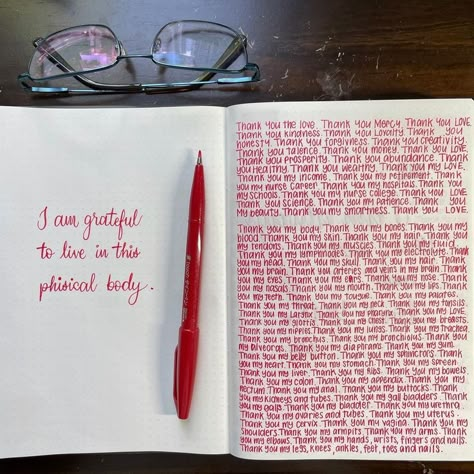 I am grateful
to live in this
phisical body.
Thank you the love. Thank you Mercy. Thank you LOVE.
Thank you kindness. Thank you Loyalty. Thank you
honesty. Thank you forgivness. Thank you creativity.
Thank you talence. Thank you money. Thank you LOVE.
Thank you prosperity. Thank you abundance. Thank
you healthy. Thank you wealthy. Thank you my LOVE.
Thank you my income. Thank you my retirement. Thank
you my nurse career. Thank you my hospitals. Thank you
my schools. Thank you my nurse college. Thank you LOVE
Thank you science. Thank you my patience. Thank you
my beauty. Thank you my smartness. Thank you LOVE
Thank you my body. Thank you my bones. Thank you my
blood. Thank you my skin. Thank you my hair. Thank you
my tendons. Thank you my muscles. Thank you my fluid.
Thank you my lymphnodes. Thank you my electrolyte. Thank
you my head. Thank you my skull. Thank you my hair. Thank
you my brain. Thank you arteries and veins in my brain. Thank
you my eyes. Thank you my ears. Thank you my nose. Thank
you my nasals. Thank you my mouth. Thank you my lips. Thank
you my teeth. Thank you my tongue. Thank you my palates.
Thank you my throat. Thank you my neck. Thank you my tonsils.
Thank you my Larynx. Thank you my pharynx. Thank you my LOVE.
Thank you my glottis. Thank you my chest. Thank you my breasts.
Thank you my nipples. Thank you my lungs. Thank you my trachea.
Thank you my bronchus. Thank you my bronchious. Thank you
my alveorgs. Thank you my diaphrams. Thank you my
Thank you my belly button. Thank you my sphincrors. Thank
you my heart. Thank you my stomach. Thank you my spleen.
Thank you my liver. Thank you my ribs. Thank you my bowels.
Thank you my colon. Thank you my appendix. Thank you my
rectum. Thank you my anal. Thank you my buttocks. Thank
you my kidneys and tubes. Thank you my gall bladders. Thank
you my galls. Thank you my bladder. Thank you my urethra.
Thank you my ovaries and tubes. Thank you my uterus.
Thank you my cervix. Thank you my vagina. Thank you my
shoulders. Thank you my armpits. Thank you my arms. Thank
you my elbows. Thank you my hands, wrists, fingers and nails.
Thank you my legs, knees, ankles, feet, toes and nails.